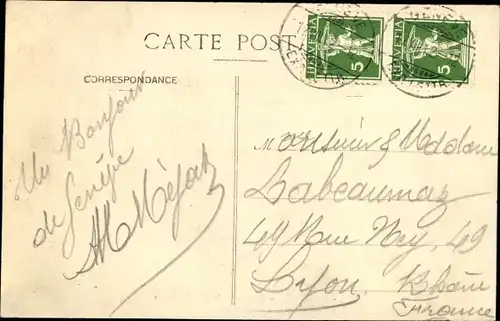 CARTE POST
HELVETIA 5
HELVETIA 5
CORRESPONDANCE
Un Bonjour
de Genève
Monsieur & Madame
49 Rue Ney, 49
Lyon. Rhône
France